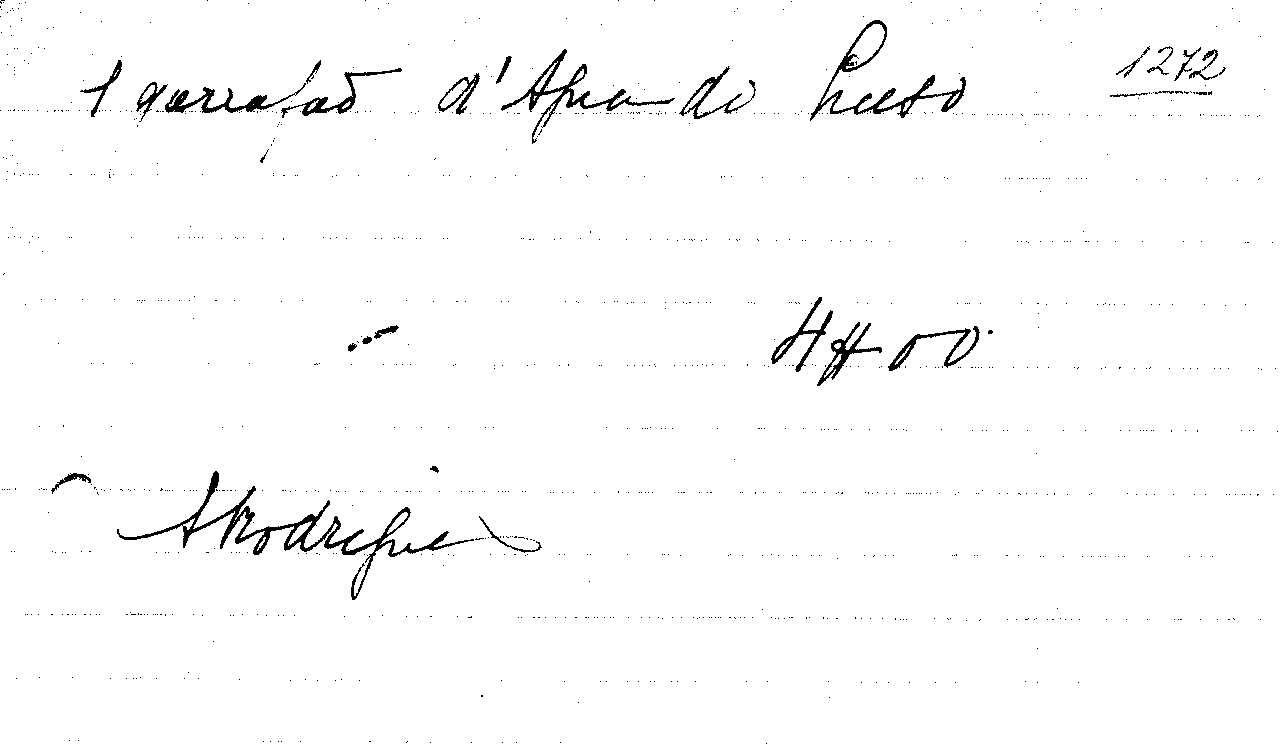 1 garrafão d'Agua do Luso 1272
4$00
ARodrigues